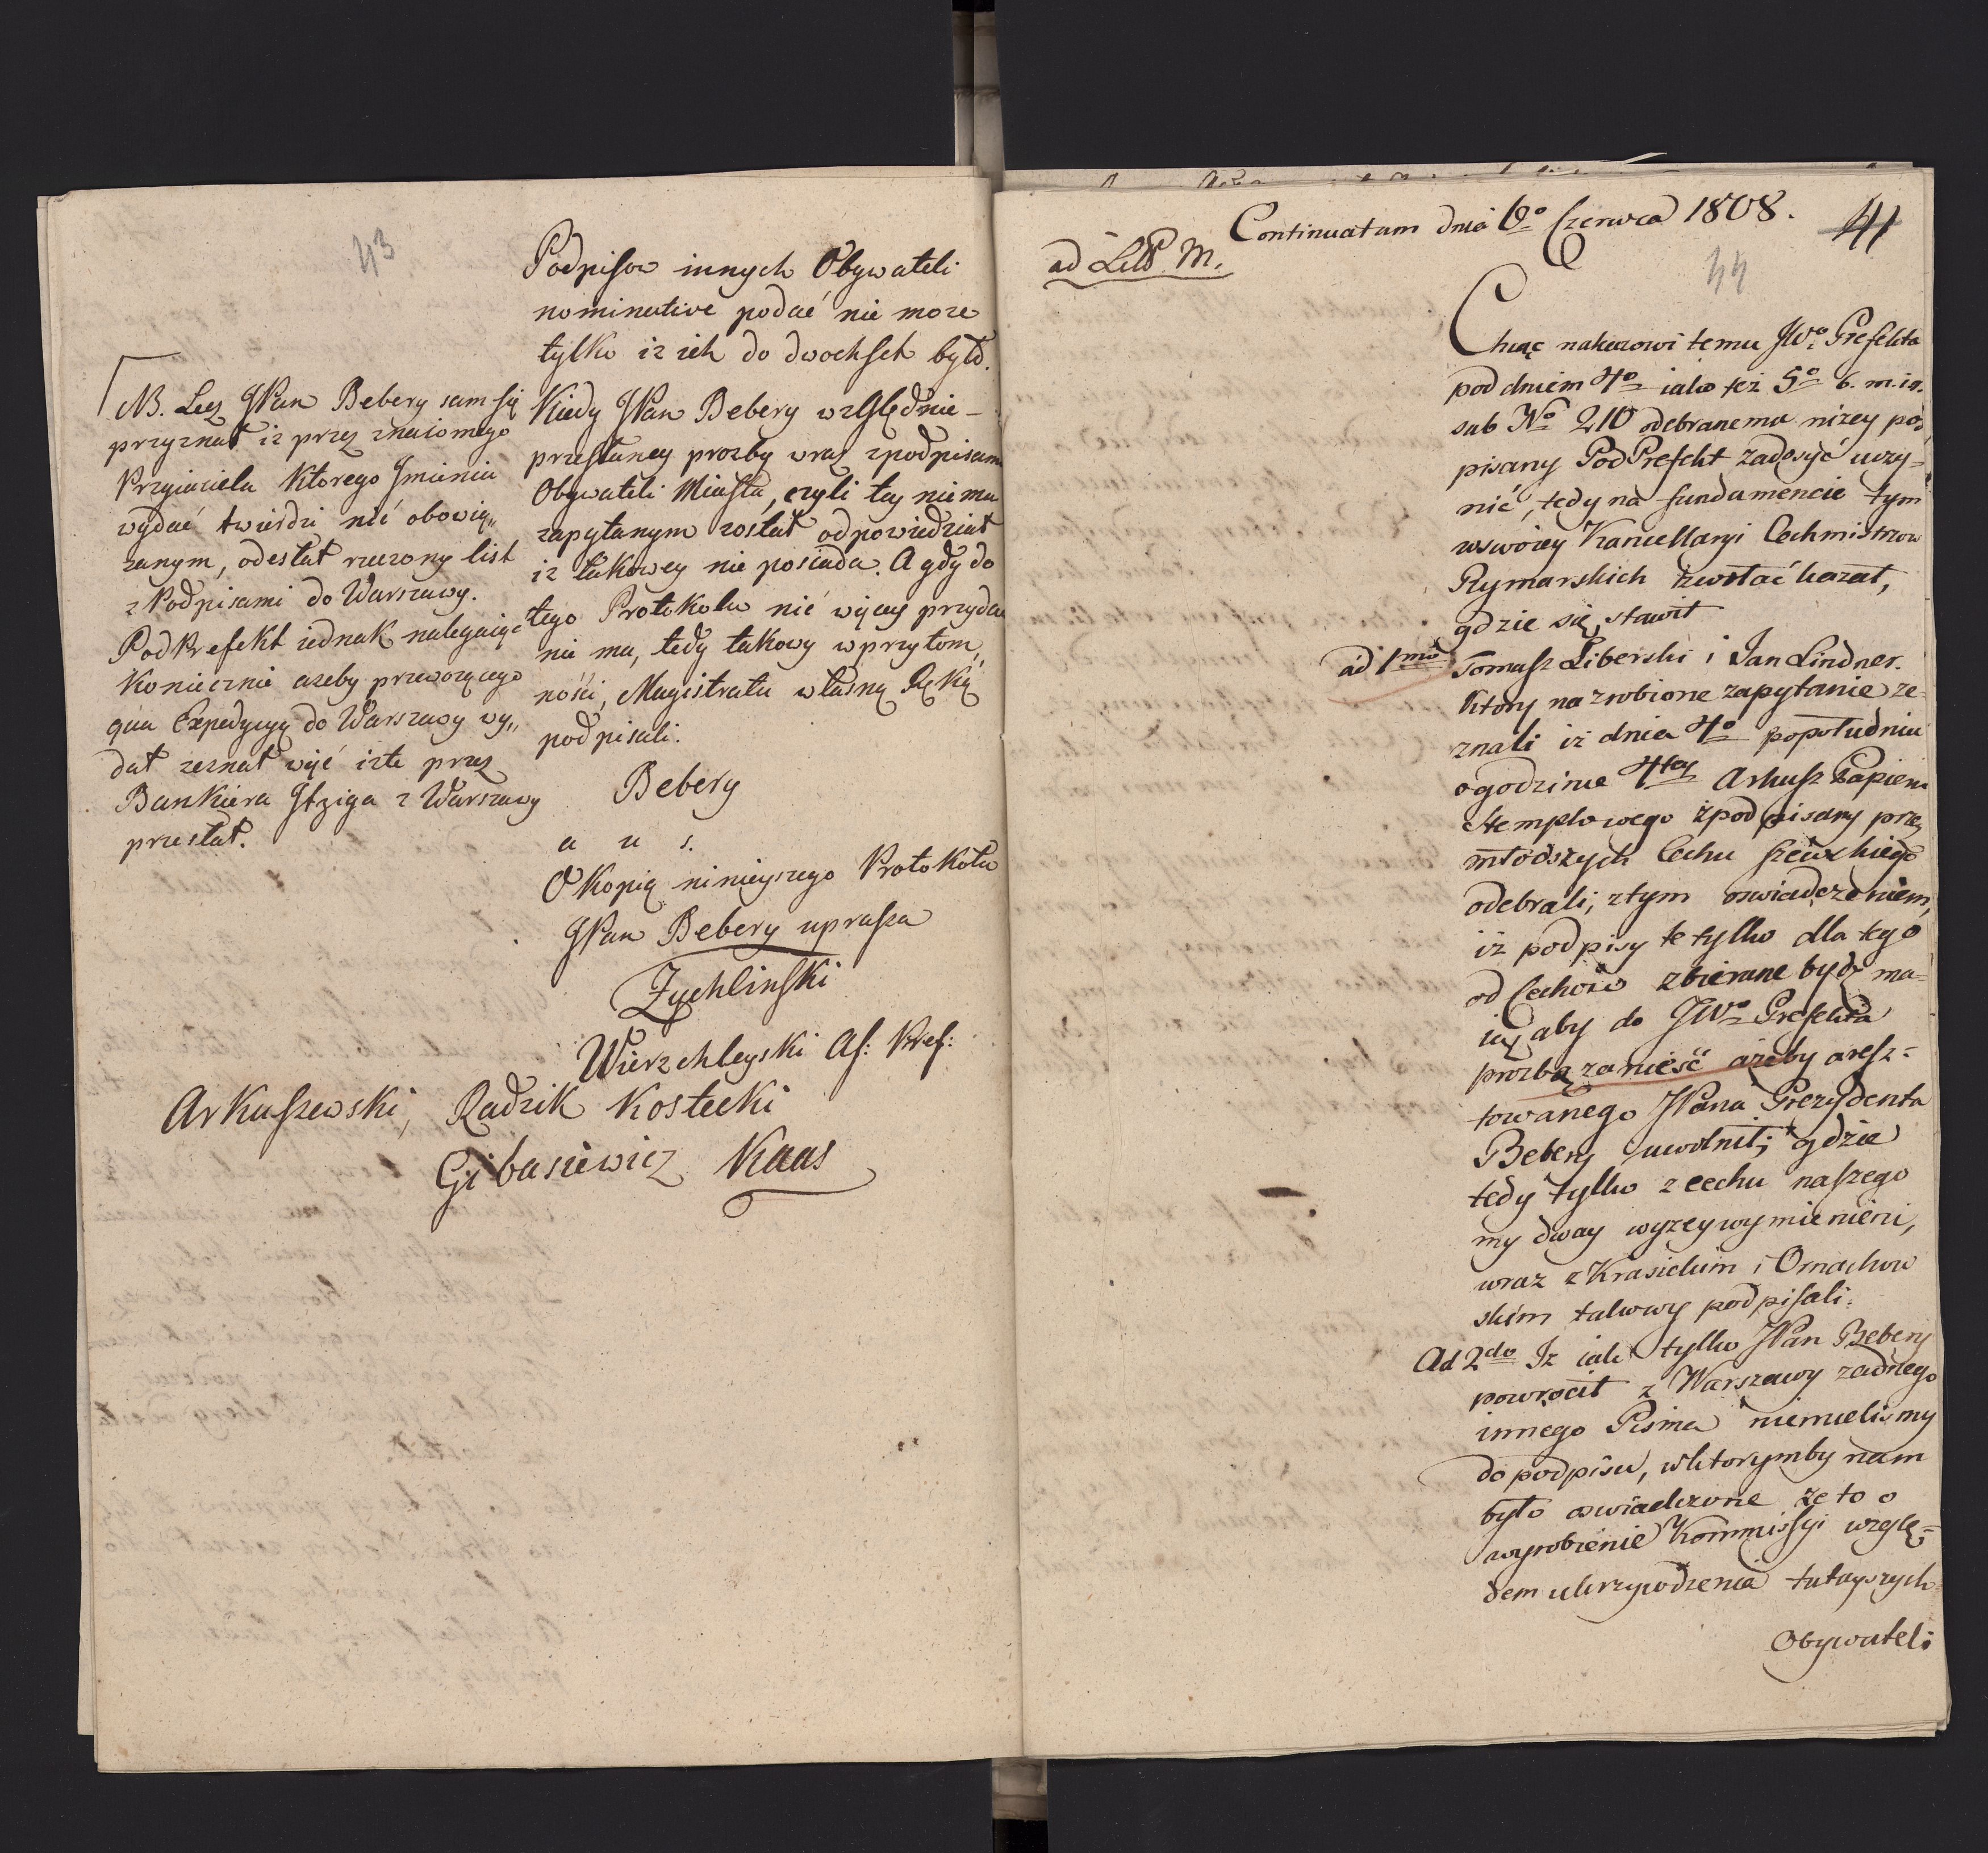 43
Podpisow innych Obywateli
nominative podać nie może
tylko iż ich do dwochset było.
Kiedy JPan Bebery względnie
przesłaney prozby wraz z podpisami
Obywateli Miasta, czyli tey nie ma
zapytanym został odpowiedział
iz takowey nie posiada. A gdy do
tego Protokołu nic więcey przydać
nie ma, tedy takowy w przytom,
ności, Magistratu własną Ręką
podpisali.
Bebery
a u s.
O Kopią ninieyszego Protokołu
JPan Bebery uprasza
Zychlinski
Wierzchleyski As: Pref:
Arkuszewski, Radzik Kostecki
Gibasiewicz Kaas
NB. Lecz JPan Bebery sam się
przyznał iz przez znaiomego
Przyiaciela Ktorego Jmienia
wydać twierdzi nie obowią„
zanym, odesłał rzeczony list
z Podpisami do Warszawy.
PodPrefekt iednak nalegaiąc
Koniecznie azeby przewozącego
qua Expedycyą do Warszawy wy„
dał zeznał więc iz te przez
Bankiera Jtziga z Warszawy
przesłał.
Continuatum dnia 6o Czerwca 1808.
41
44
ad Litt. M.
Chcąc nakazowi temu JWo Prefekta
pod dniem 4o iako też 5o b. m. i r.
sub No 210 odebranemu niżey pod
pisany PodPrefekt zadosyć uczy=
nić, tedy na fundamencie tym
w swoiey Kancellaryi Cechmistrzow
Rymarskich zwołać kazał,
gdzie się stawił
ad 1mo Tomasz Liberski i Jan Lindner.
Ktory na zrobione zapytanie ze=
znali iż dnia 4o popołudniu
o godzinie 4tey Arkusz Papieru
stemplowego zpodpisany przez
młodszych Cechu szewskiego
odebrali, z tym oswiadczeniem,
iż podpisy te tylko dla tego
od Cechow zbierane bydź ma=
ią aby do JWo Prefekta
prozbę zanieść ażeby aresz=
towanego JPana Prezydenta
Bebery uwolnił; gdzie
tedy tylko z cechu naszego
my dway wyżey wymienieni,
wraz z Krasickim i Omachow
skim takowy podpisali.
Ad 2do Iz iak tylko JPan Bebery
powrocił z Warszawy zadnego
innego Pisma niemielismy
do podpisu, w ktorymby nam
było oswiadczone że to o
wyrobienie Kommissyi wzglę=
dem ukrzywdzenia tutayszych
Obywateli